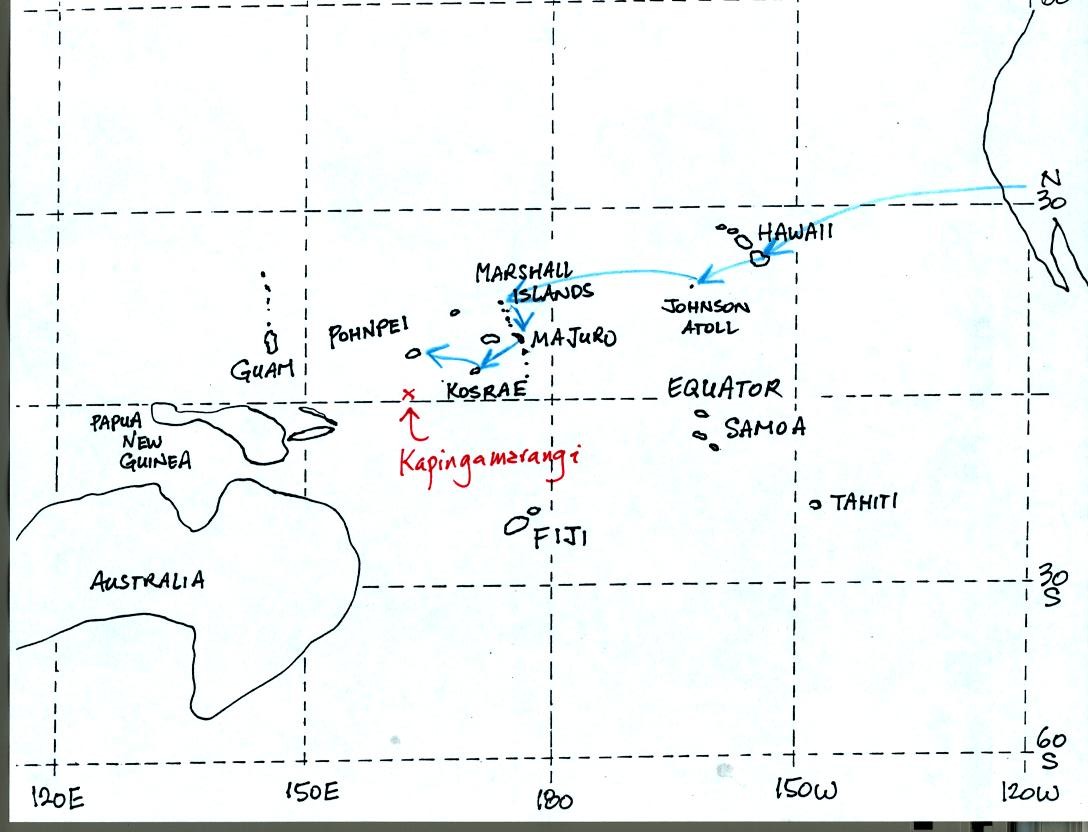 60
N
30
HAWAII
MARSHALL
ISLANDS
JOHNSON
ATOLL
POHNPEI
MAJURO
GUAM
KOSRAE
EQUATOR
PAPUA
NEW
GUINEA
SAMOA
Kapingamarangi
TAHITI
FIJI
AUSTRALIA
30
S
60
S
120E
150E
180
150W
120W